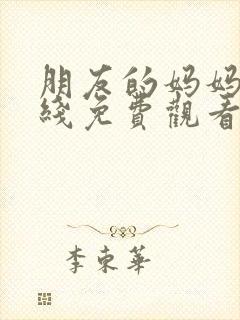 朋友的妈妈
綫免費觀看
李東華